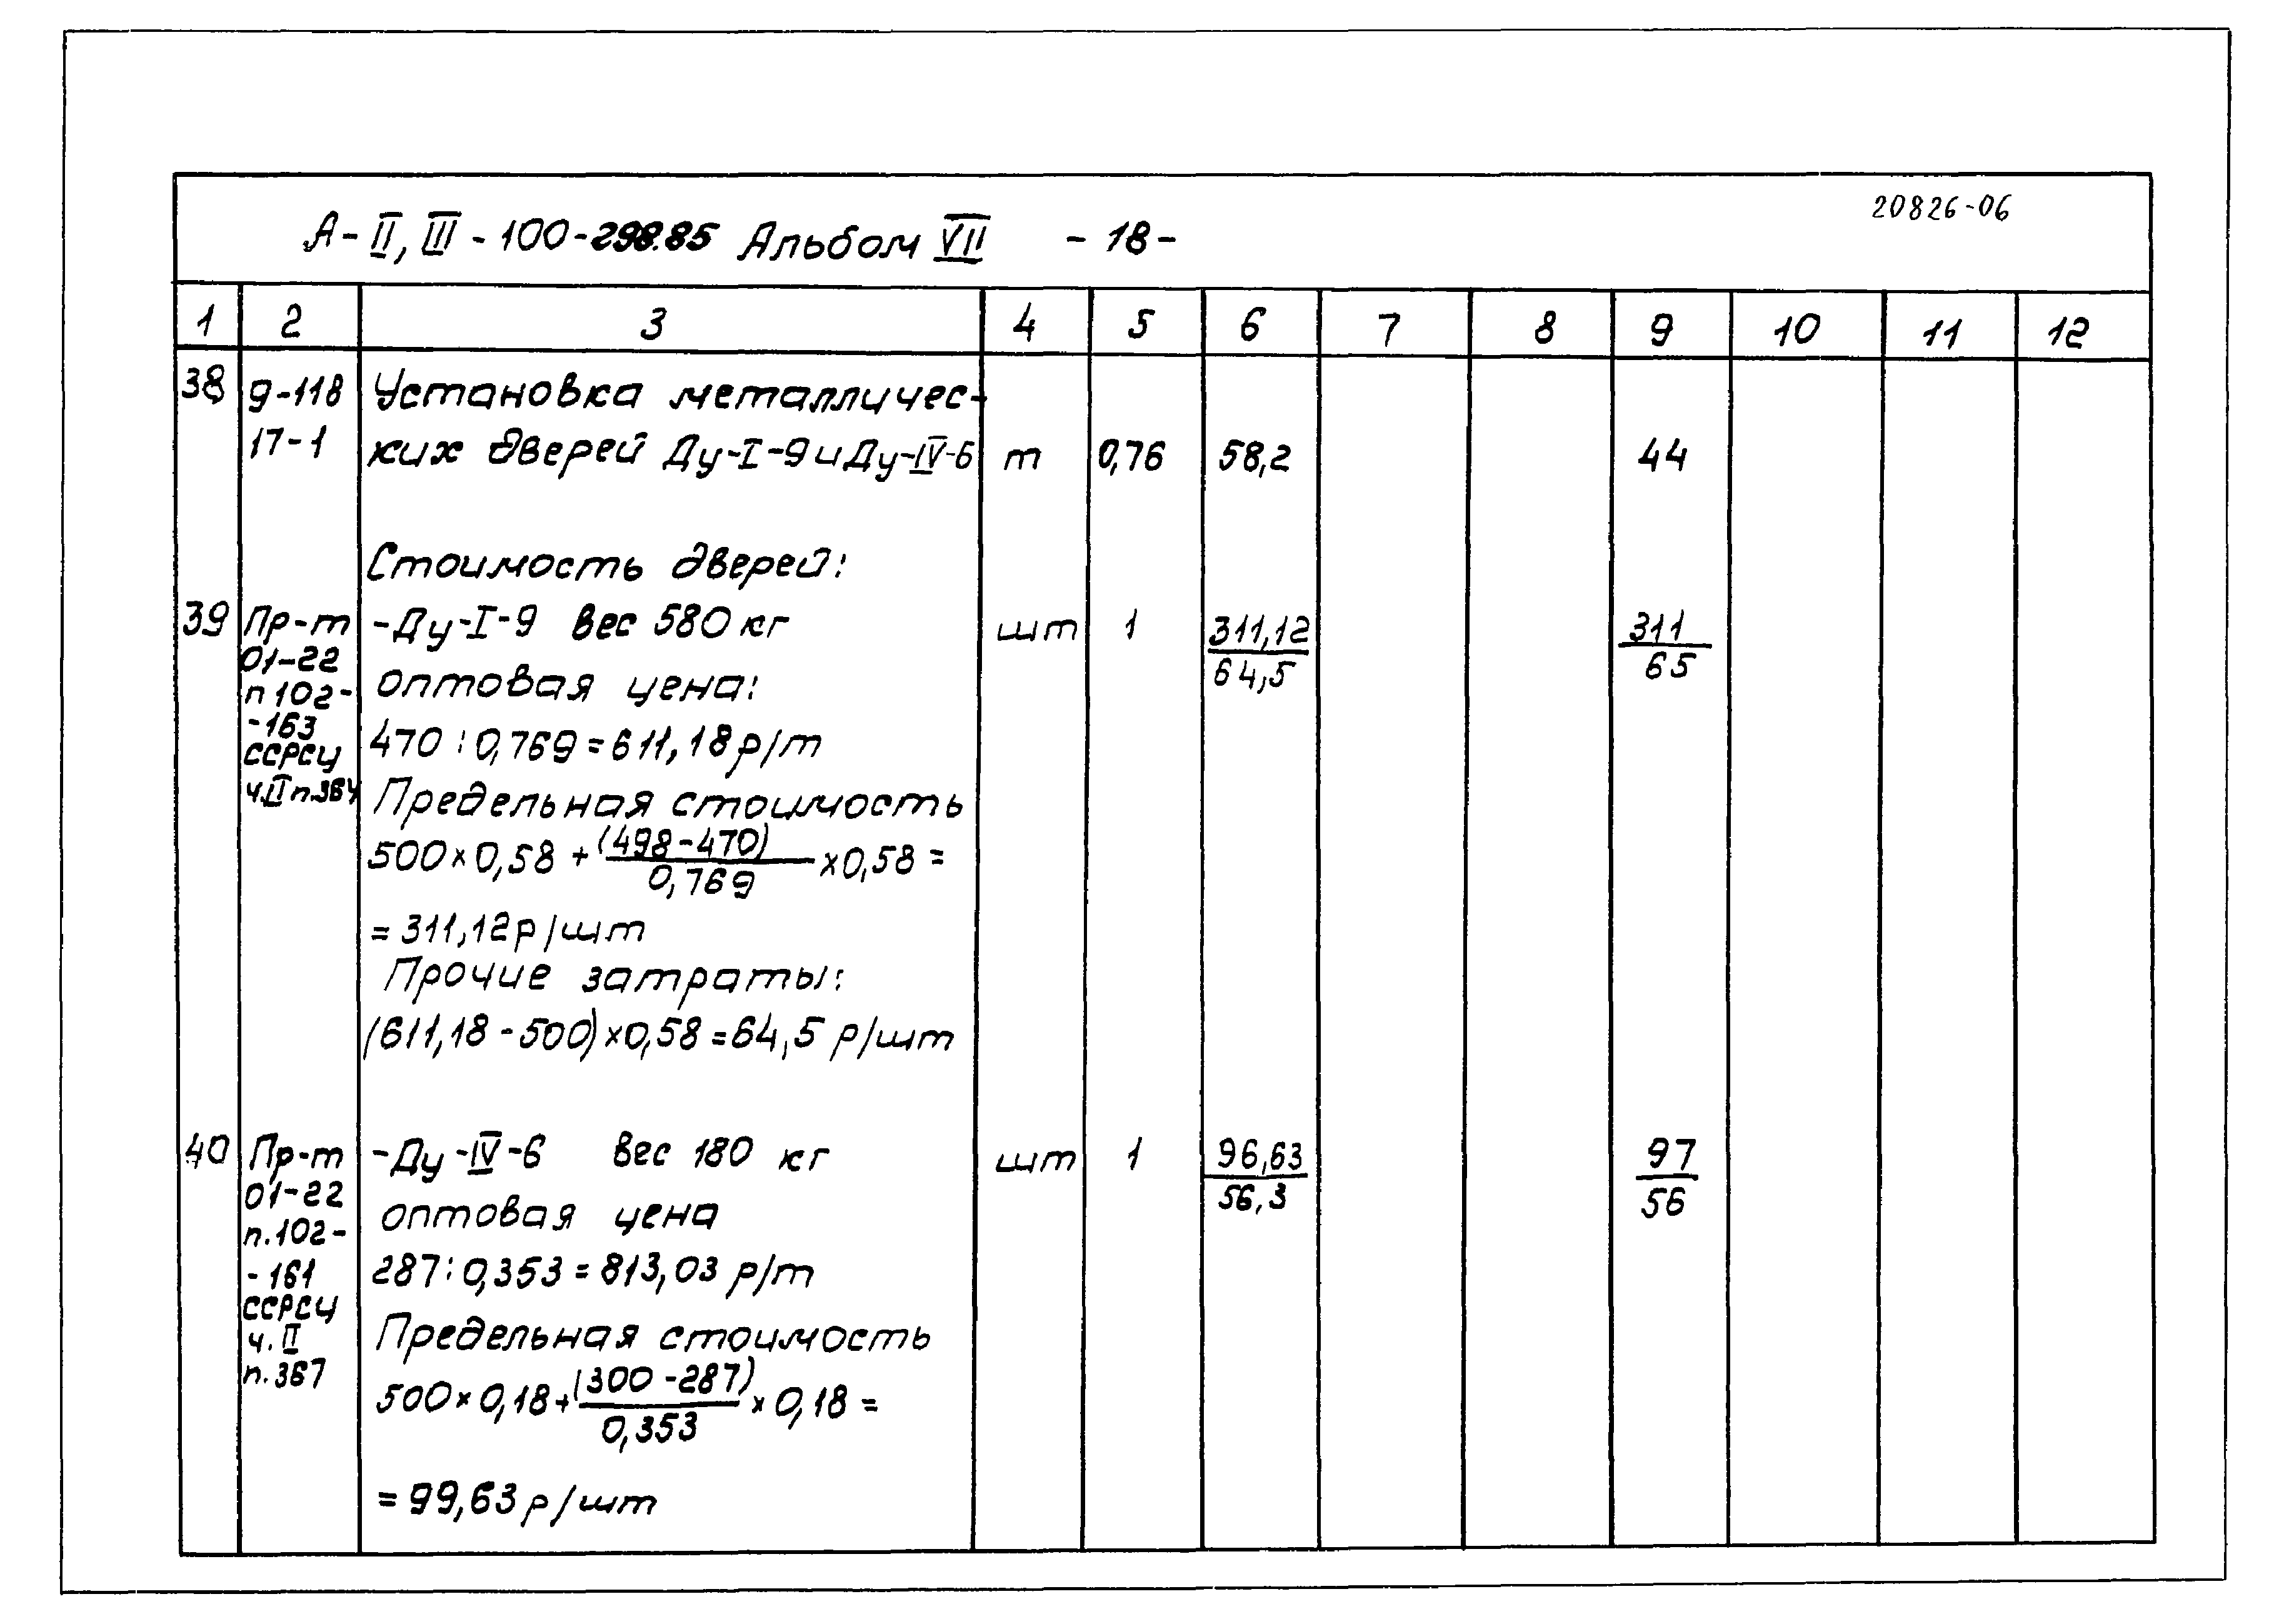 20826-06
А-II, III-100-298.85 Альбом VII -18-
1 2 3 4 5 6 7 8 9 10 11 12
38 9-118 Установка металличес-
17-1 ких дверей Ду-I-9 и Ду-IV-6 т 0,76 58,2 44
Стоимость дверей:
39 Пр-т -Ду-I-9 вес 580 кг шт 1 311,12 311
01-22 64,5 65
п 102- оптовая цена:
-163
ССРСЦ 470 : 0,769 = 611,18 р/т
ч.II п.364 Предельная стоимость
500 × 0,58 + (498-470)/0,769 × 0,58 =
= 311,12 р/шт
Прочие затраты:
(611,18 - 500) × 0,58 = 64,5 р/шт
40 Пр-т -Ду-IV-6 вес 180 кг шт 1 96,63 97
01-22 оптовая цена 56,3 56
п.102-
-161 287 : 0,353 = 813,03 р/т
ССРСЦ
ч.II Предельная стоимость
п.367 500 × 0,18 + (300-287)/0,353 × 0,18 =
= 99,63 р/шт